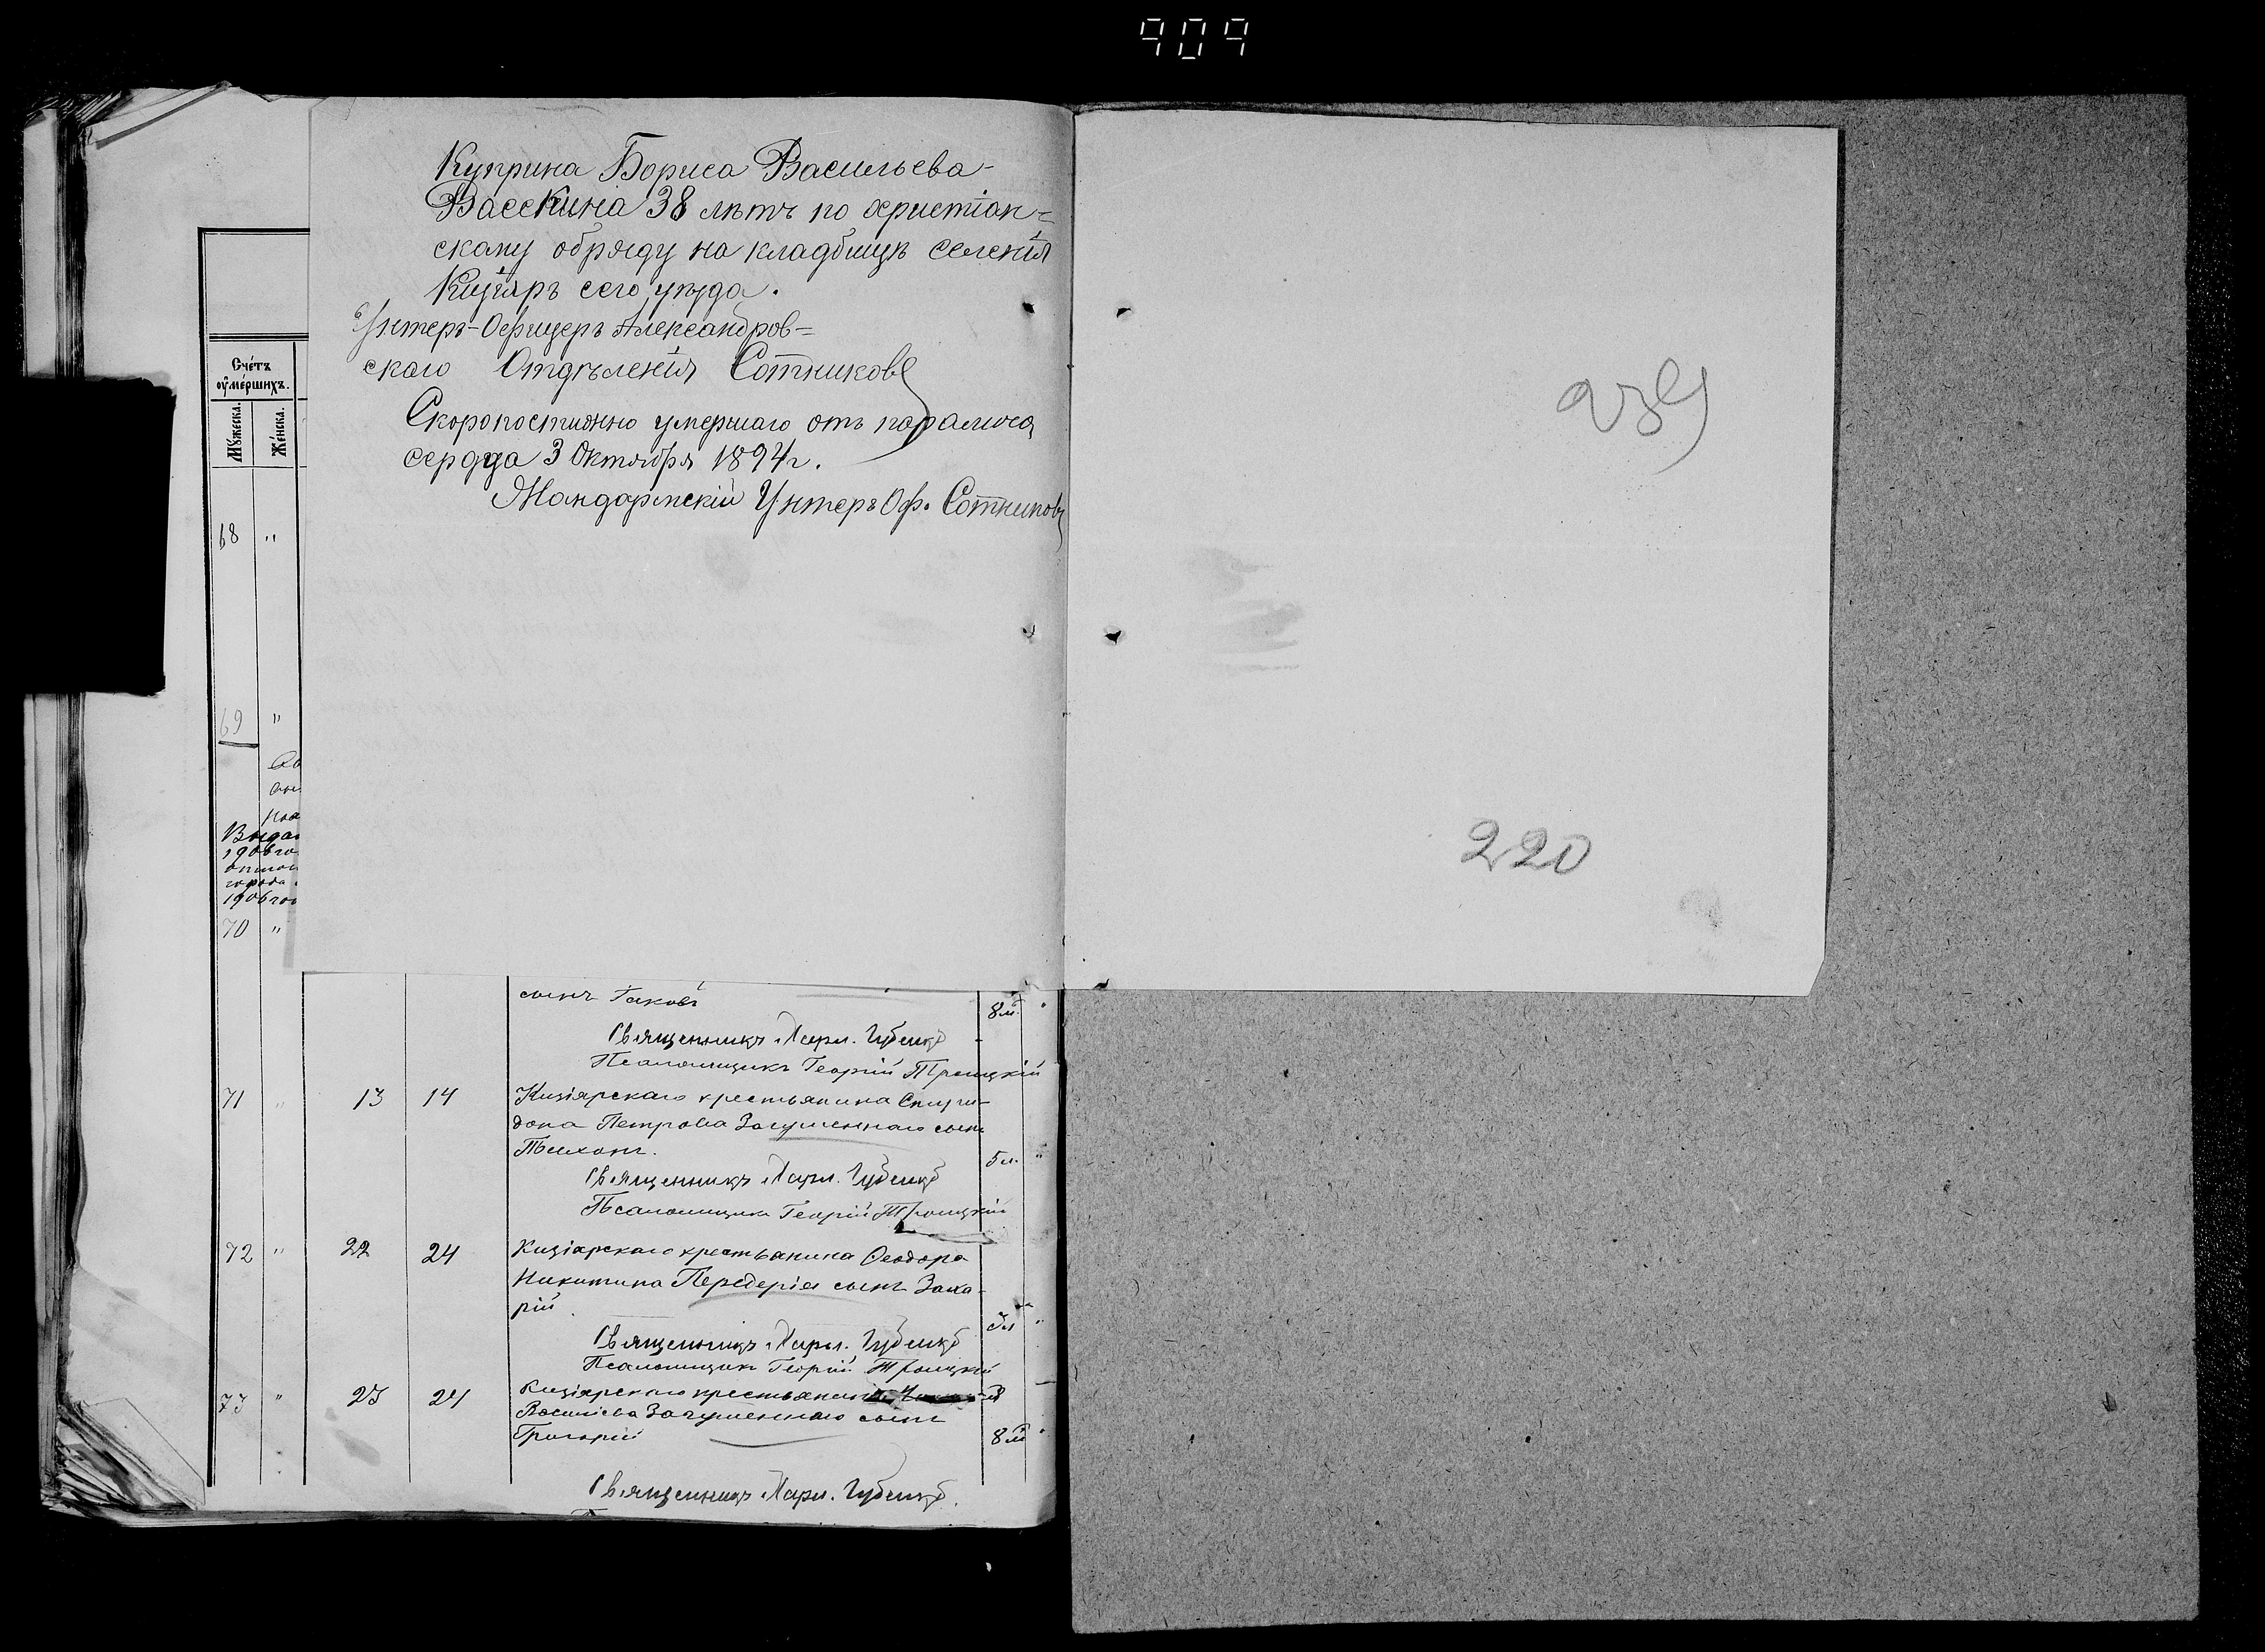 909
Куприна Бориса Васильева-
Васскина 38 лѣтъ по христіан=
скому обряду на кладбищѣ селенія
Кизіяръ сего уѣзда.
Унтеръ-Офицеръ Александров=
скаго Отдѣленія Сотниковъ
Скоропостижно умершаго отъ паралича
сердца 3 Октября 1894 г.
Жандармскій Унтеръ Оф. Сотниковъ
239
220
Счетъ
оумершихъ.
Мужеска.
Женска.
68 "
69 "
1906 го
города
1906 го
70 "
сынъ Іаковъ
8 м.
Священникъ Харл. Губенко
Псаломщикъ Георгій Троицкій
71 " 13 14 Кизіярскаго крестьянина Спири-
дона Петрова Загуменнаго сынъ
Тихонъ.
5 м.
Священникъ Харл. Губенко
Псаломщикъ Георгій Троицкій
72 " 22 24 Кизіярскаго крестьянина Феодора
Никитина Передерія сынъ Заха-
рій
Священникъ Харл. Губенко
Псаломщикъ Георгій Троицкій
73 " 23 24 Кизіярскаго крестьянина
Василіева Загуменнаго сынъ
Григорій
8 м
Священникъ Харл. Губенко.